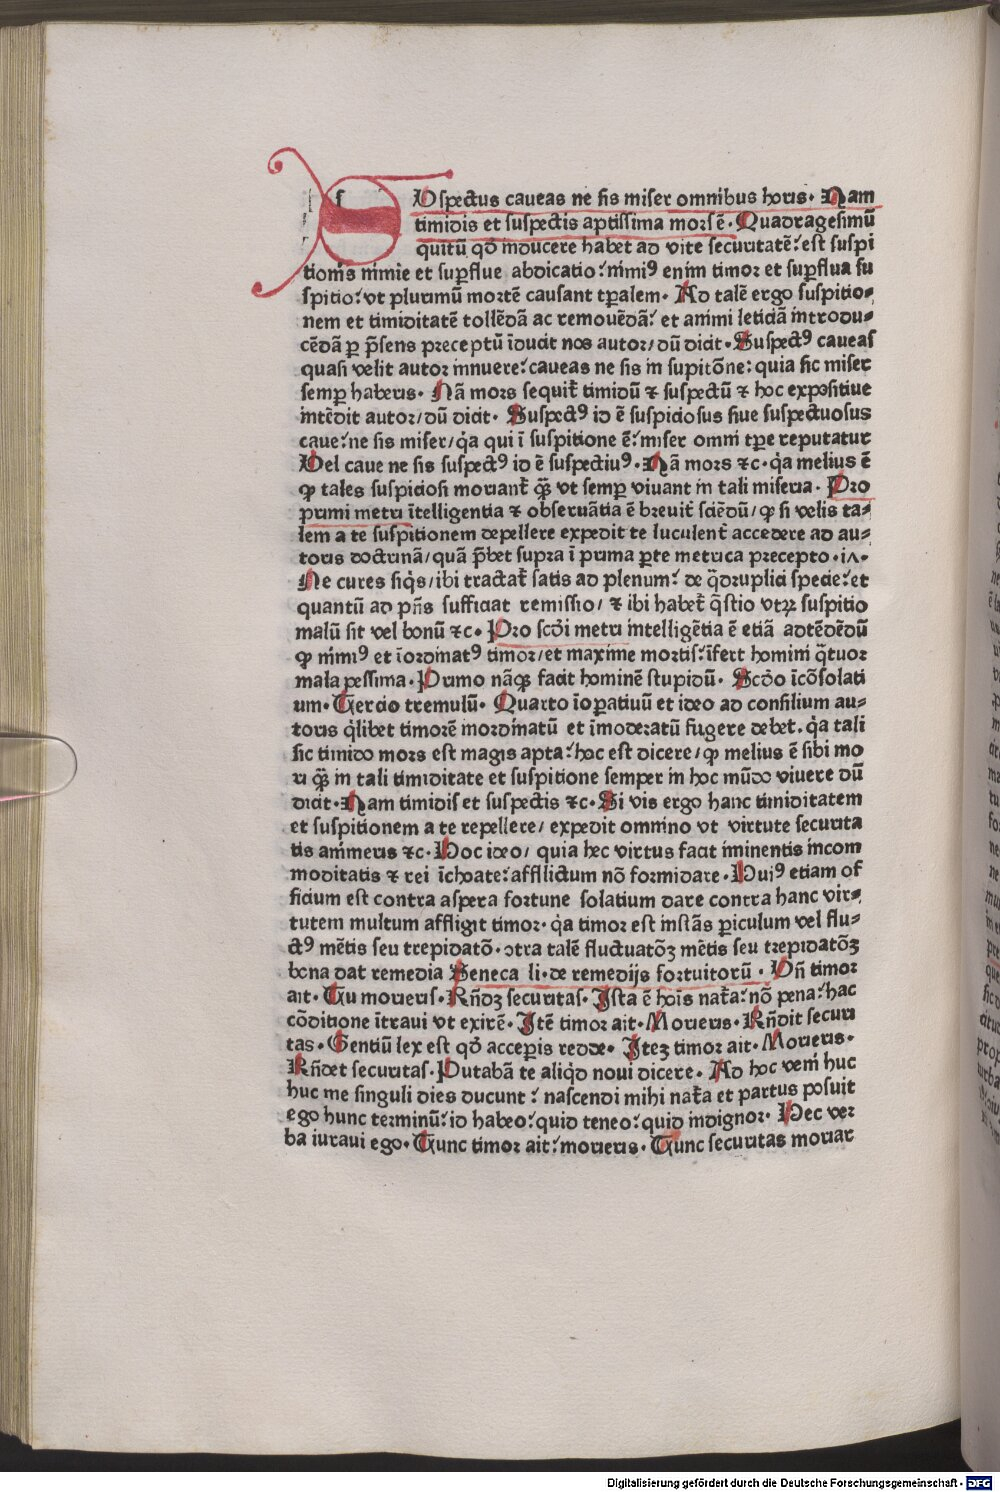 Vspectus caueas ne sis miser omnibus horis. Nam
timidis et suspectis aptissima mors ē. Quadragesimū
quitū qđ inducere habet ad vite securitatē: est suspi
tionis nimie et suꝑflue abdicatio: nimiꝰ enim timor et suꝑflua su
spitio: vt plurimū mortē causant tꝑalem. Ad talē ergo suspitio⸗
nem et timiditatē tollēdā ac remouēdā: et animi leticiā introdu⸗
cēdā ꝑ p̄sens preceptū īducit nos autor/ dū dicit. Suspectꝰ caueas
quasi velit autor innuere: caueas ne sis in supitōne: quia sic miser
semꝑ haberis. Nā mors sequit᷑ timidū ⁊ suspectū ⁊ hoc expositiue
intēdit autor/ dū dicit. Suspectꝰ id ē suspiciosus siue suspectuosus
caue: ne sis miser/ q̇a qui ī suspitione ē: miser omni tꝑe reputatur
Vel caue ne sis suspectꝰ id ē suspectiuꝰ. Nā mors ⁊c. q̇a melius ē
ꝙ tales suspiciosi moriant᷑ q̄ꝫ vt semꝑ viuant in tali miseria. Pro
primi metri ītelligentia ⁊ obseruātia ē breuit᷑ sciēdū/ ꝙ si velis ta⸗
lem a te suspitionem depellere expedit te luculent᷑ accedere ad au⸗
toris doctrinā/ quā p̄bet supra ī prima ꝑte metrica precepto. iʌ.
Ne cures siq̇s/ ibi tractat᷑ satis ad plenum: de q̄druplici specie: et
quantū ad pn̄s sufficiat remissio/ ⁊ ibi habet᷑ q̄stio vtꝝ suspitio
malū sit vel bonū ⁊c. Pro scđi metri intelligētia ē etiā adtēdēdū
ꝙ nimiꝰ et īordinatꝰ timor/ et maxime mortis: īfert homini q̄tuor
mala pessima. Primo nāqꝫ facit hominē stupidū. Scđo īcōsolati
uum. Tercio tremulū. Quarto īopatiuū et ideo ad consilium au⸗
toris q̇libet timorē inordinatū et īmoderatū fugere debet. q̇a tali
sic timido mors est magis apta: hoc est dicere/ ꝙ melius ē sibi mo
ri q̄ꝫ in tali timiditate et suspitione semper in hoc mūdo viuere dū
dicit. Nam timidis et suspectis ⁊c. Si vis ergo hanc timiditatem
et suspitionem a te repellere/ expedit omnino vt virtute securita
tis animeris ⁊c. Hoc ideo/ quia hec virtus facit iminentis incom
moditatis ⁊ rei īchoate: afflictum nō formidare. Huiꝰ etiam of
ficium est contra aspera fortune solatium dare contra hanc vir⸗
tutem multum affligit timor. q̇a timor est instās ꝑiculum vel flu⸗
ctꝰ mētis seu trepidatō. ɔtra talē fluctuatōꝫ mētis seu trepidatōꝫ
bona dat remedia Seneca li. de remedijs fortuitorū. Vn̄ timor
ait. Tu morieris. Rn̄dꝫ securitas. Ista ē hoīs nat᷑a: nō pena: hac
cōditione ītraui vt exirē. Itē timor ait. Morieris. Rn̄dit securi
tas. Gentiū lex est qđ acceperis redde. Iteꝫ timor ait. Morieris.
Rn̄det securitas. Putabā te aliq̇d noui dicere. Ad hoc veni huc
huc me singuli dies ducunt: nascendi mihi nat᷑a et partus posuit
ego hunc terminū: id habeo: quid teneo: quid indignor. Hec ver
ba iuraui ego. Tunc timor ait: morieris. Tunc securitas moriar
Digitalisierung gefördert durch die Deutsche Forschungsgemeinschaft - DFG